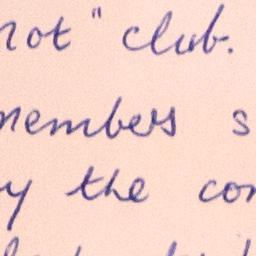 not" club.
members s
y the con